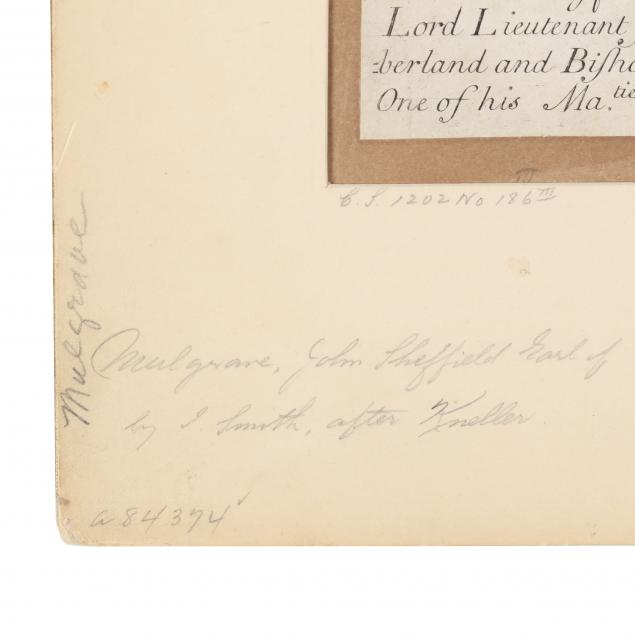 Lord Lieutenant
berland and Bisho
One of his Ma.tie
C. S. 1202 No 186 III
Mulgrave
Mulgrave, John Sheffield Earl of
by I. Smith, after Kneller.
a 84374